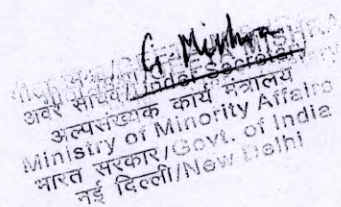 G Mishra
अवर सचिव/Under Secretary
अल्पसंख्यक कार्य मंत्रालय
Ministry of Minority Affairs
भारत सरकार/Govt. of India
नई दिल्ली/New Delhi